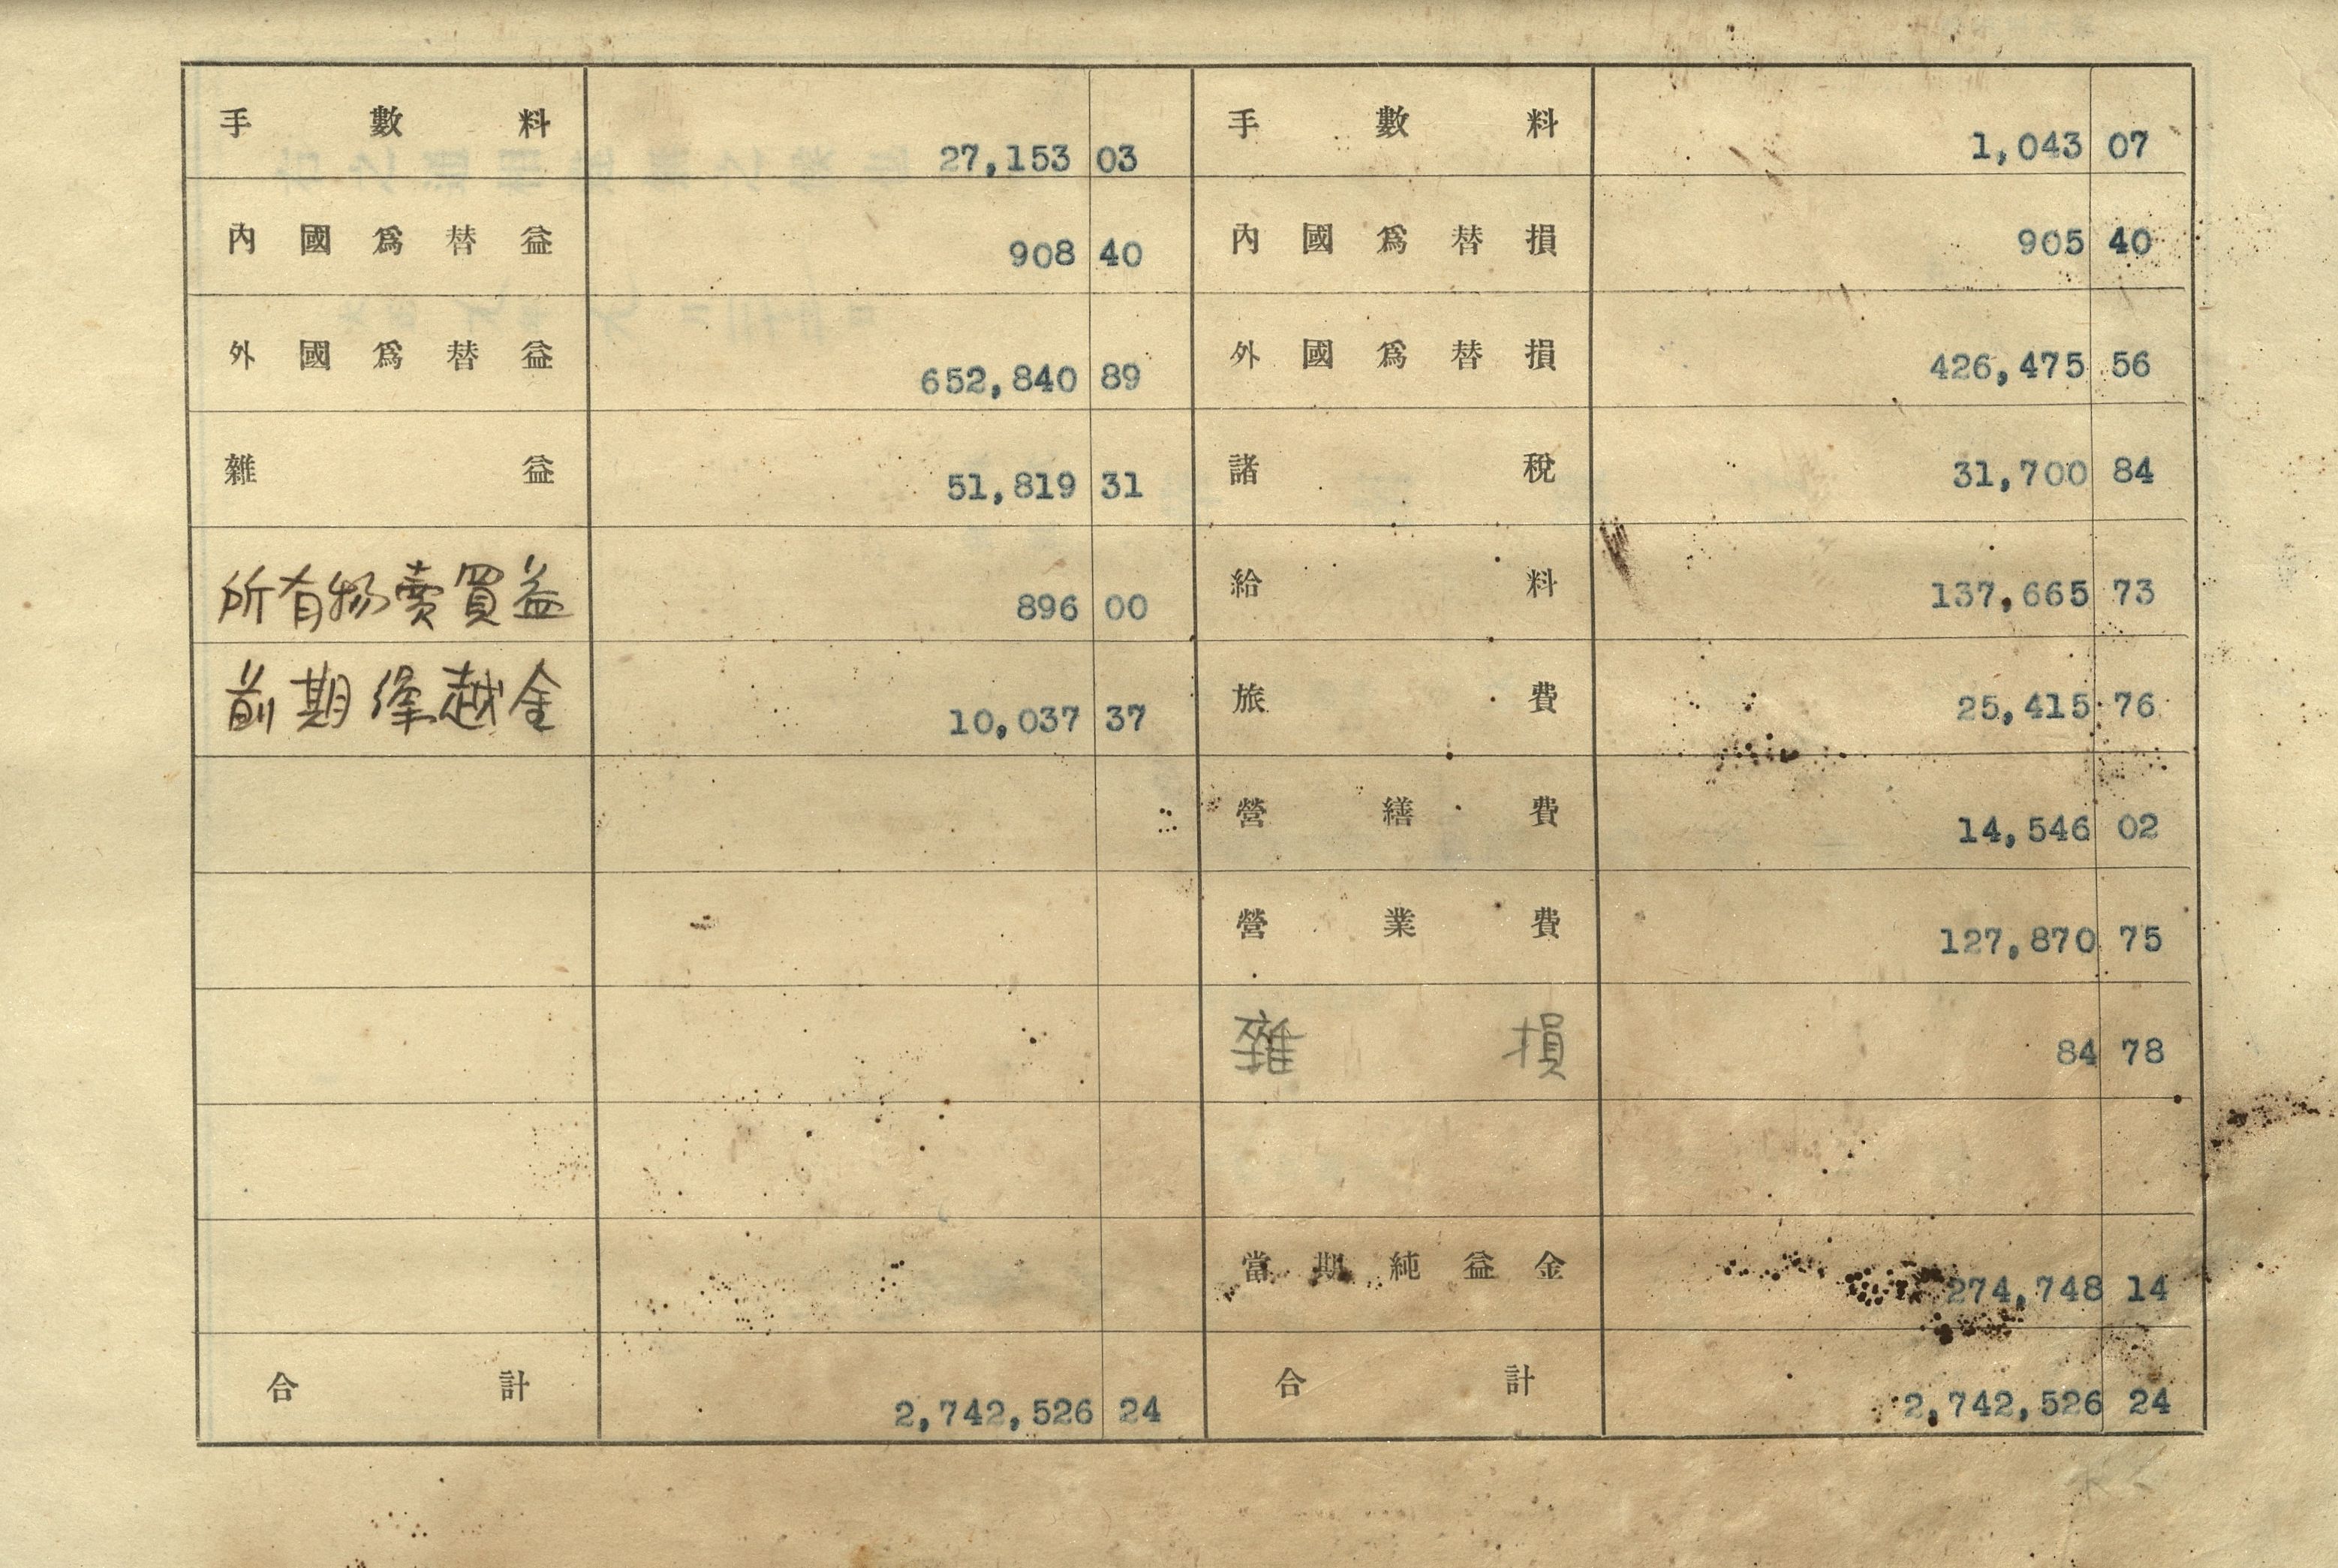 手數料 27,153 03 手數料 1,043 07
內國爲替益 908 40 內國爲替損 905 40
外國爲替益 652,840 89 外國爲替損 426,475 56
雜益 51,819 31 諸稅 31,700 84
所有物賣買益 896 00 給料 137,665 73
前期繰越金 10,037 37 旅費 25,415 76
營繕費 14,546 02
營業費 127,870 75
雜損 84 78
當期純益金 274,748 14
合計 2,742,526 24 合計 2,742,526 24